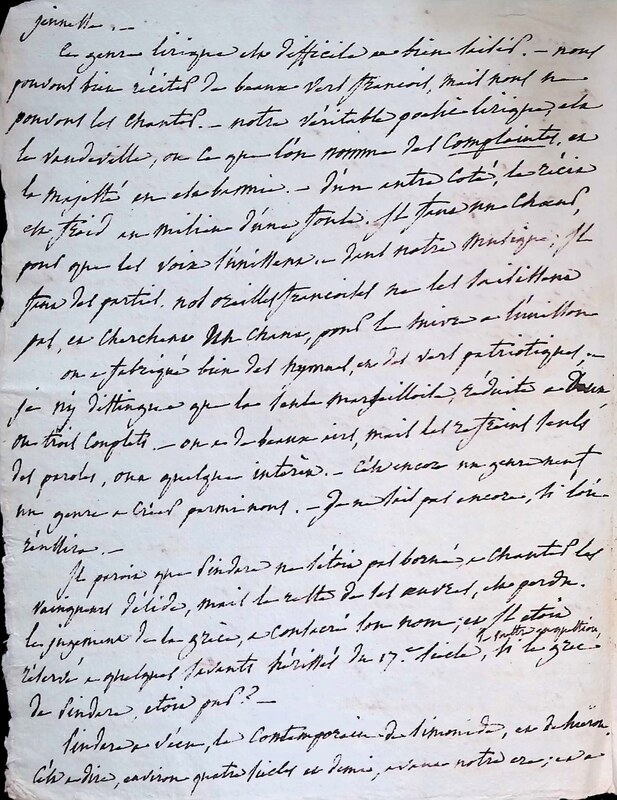 jeunesse. —
Ce genre lirique est difficile a bien saisir. — nous
pouvons bien réciter de beaux vers francois, mais nous ne
pouvons les chanter. — notre véritable poesie lirique, est
le vaudeville, ou ce que l'on nomme des Complaintes, et
la majesté en est bannie. — d'un autre coté, le récit
est froid au milieu d'une foule. Il faut un Chœur,
pour que les voix s'unissent. — dans notre Musique, Il
faut des parties. nos oreilles francoises ne les saisissent
pas, et cherchent un chant, pour le suivre a l'unisson
on a fabriqué bien des hymnes, et des vers patriotiques, —
je n'y distingue que la seule Marseilloise, réduite a Deux
ou trois Couplets. — on a de beaux airs, mais les refrains seuls
des paroles, ont quelque intérêt. — C'est encore un genre neuf
un genre a Créer parmi nous. — Je ne sais pas encore, si l'on
réussira. —
Il paroit que Pindare ne s'étoit pas borné, a chanter les
vainqueurs d'élide, mais le reste de ses œuvres, est perdu.
le jugement de la grèce, a consacré son nom; et Il étoit
réservé a quelques savants hérissés du 17.e siecle, si le grec
de Pindare, étoit pur? —
Pindare a vécu, le Contemporain de simonide, et de hiéron.
C'est a dire, environ quatre siecles et demi, avant notre ere; et a